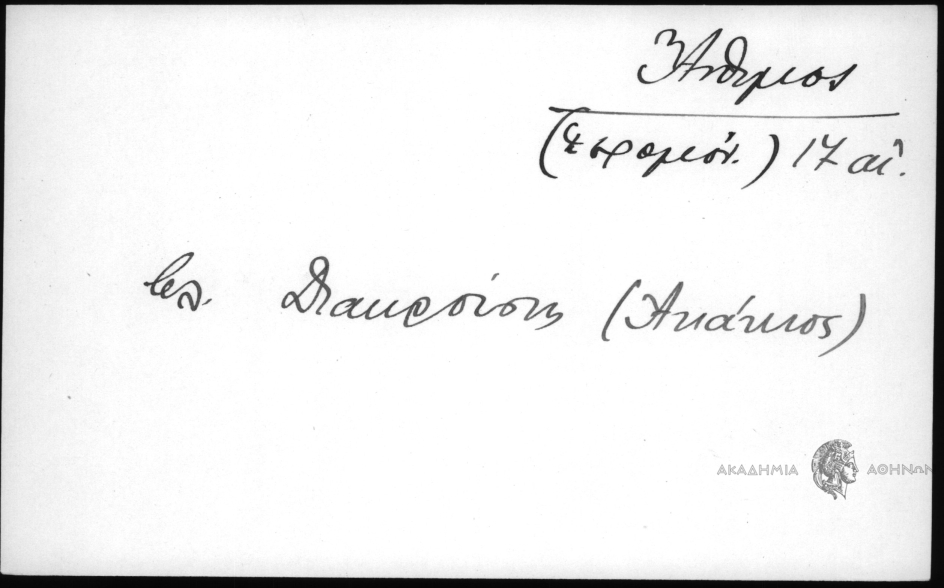 Ἄνθιμος
(ἱερομόν.) 17 αἰ.
βλ. Διακρούσης (Ἀκάκιος)
ΑΚΑΔΗΜΙΑ ΑΘΗΝΩΝ